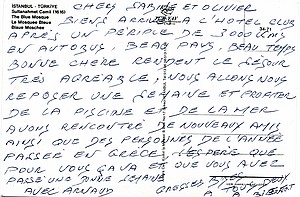 İSTANBUL - TÜRKİYE
Sultanahmet Camii (1616)
The Blue Mosque
La Mosquée Bleue
Blaue Moschee
CHERS SABINE ET OLIVIER
BIENS ARRIVÉ A L'HOTEL CLUB
APRÈS UN PERIPLE DE 3000 KMS
EN AUTOBUS, BEAU PAYS, BEAU TEMPS
BONNE CHERE RENDENT LE SEJOUR
TRÈS AGREABLE, NOUS ALLONS NOUS
REPOSER UNE SEMAINE ET PROFITER
DE LA PISCINE ET DE LA MER
AVONS RENCONTRÉ DE NOUVEAUX AMIS
AINSI QUE DES PERSONNES DE L'ANNÉE
PASSÉE EN GRÈCE J'ESPÈRE QUE
POUR VOUS ÇA VA ET QUE VOUS AVEZ
PASSÉ UNE BONNE SEMAINE
AVEC ARNAUD GROSSES BISES
A BIENTOT